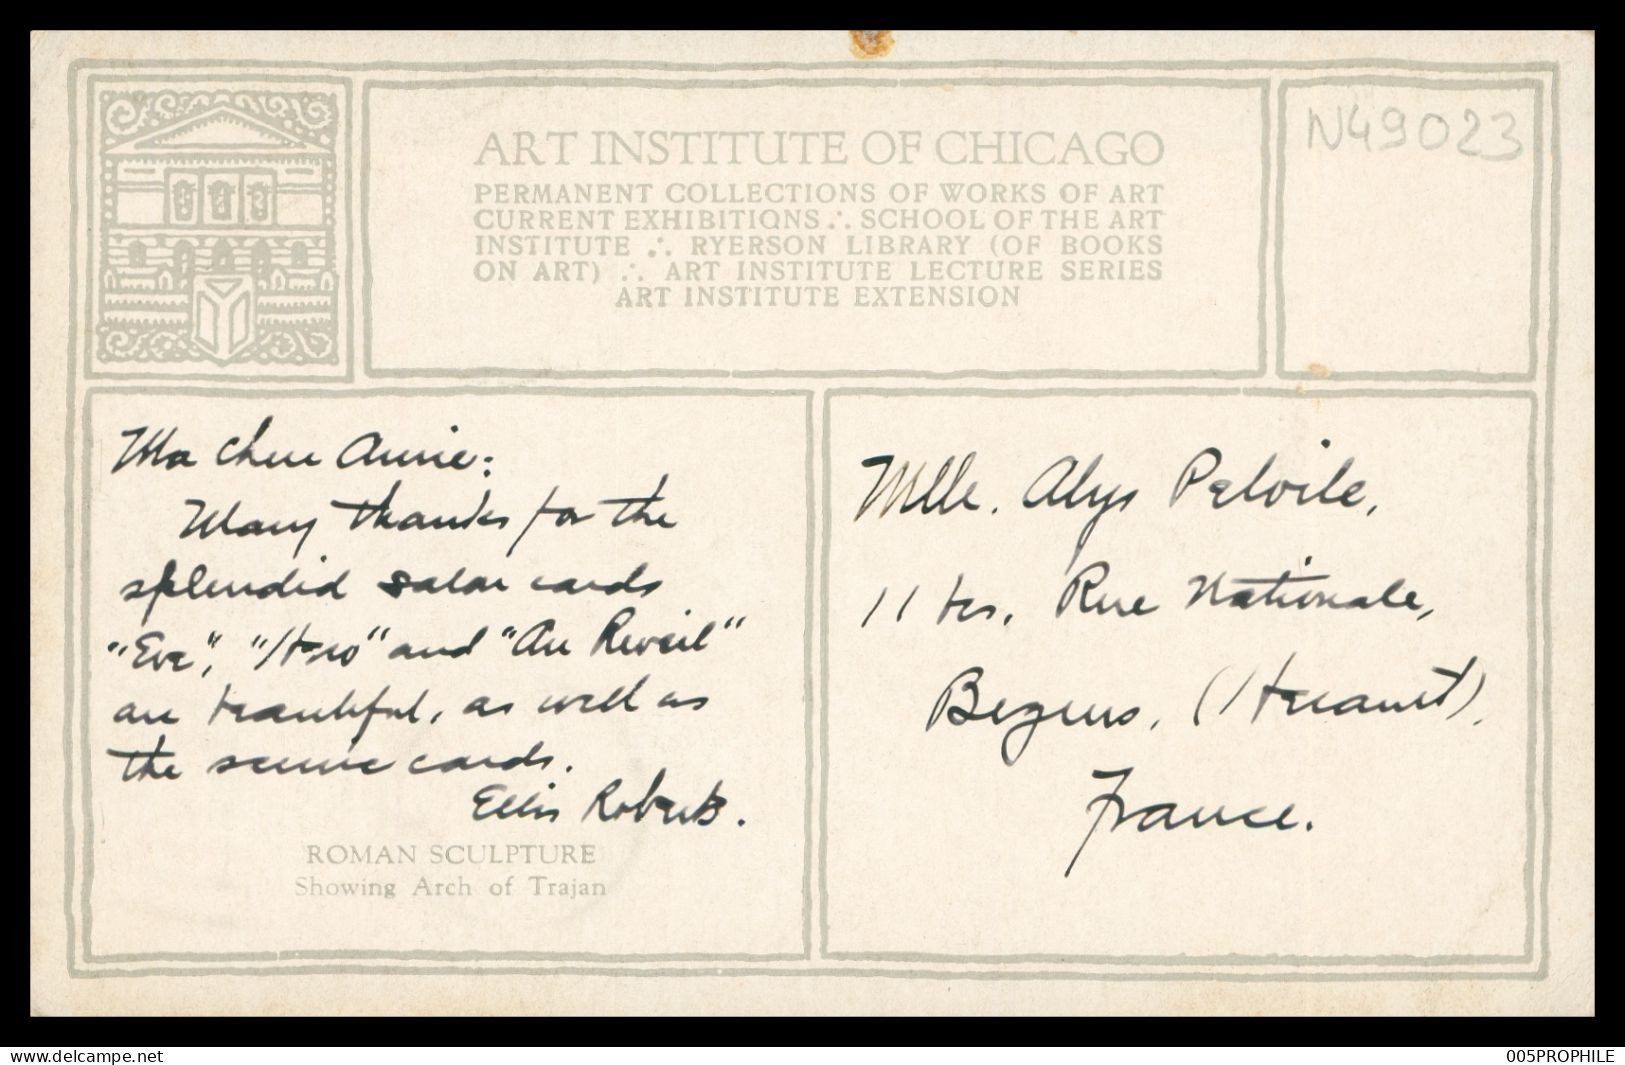 ART INSTITUTE OF CHICAGO
PERMANENT COLLECTIONS OF WORKS OF ART
CURRENT EXHIBITIONS ∴ SCHOOL OF THE ART
INSTITUTE ∴ RYERSON LIBRARY (OF BOOKS
ON ART) ∴ ART INSTITUTE LECTURE SERIES
ART INSTITUTE EXTENSION
N49023
Ma Chere Amie:
Many thanks for the
splendid salon cards
"Eve", "Hero" and "Au Reveil"
are beautiful, as well as
the scenic cards.
Ellis Roberts.
ROMAN SCULPTURE
Showing Arch of Trajan
Mlle. Alys
11 ter, Rue Nationale,
Beziers, (Herault).
France.
delcampe.net
005PROPHILE